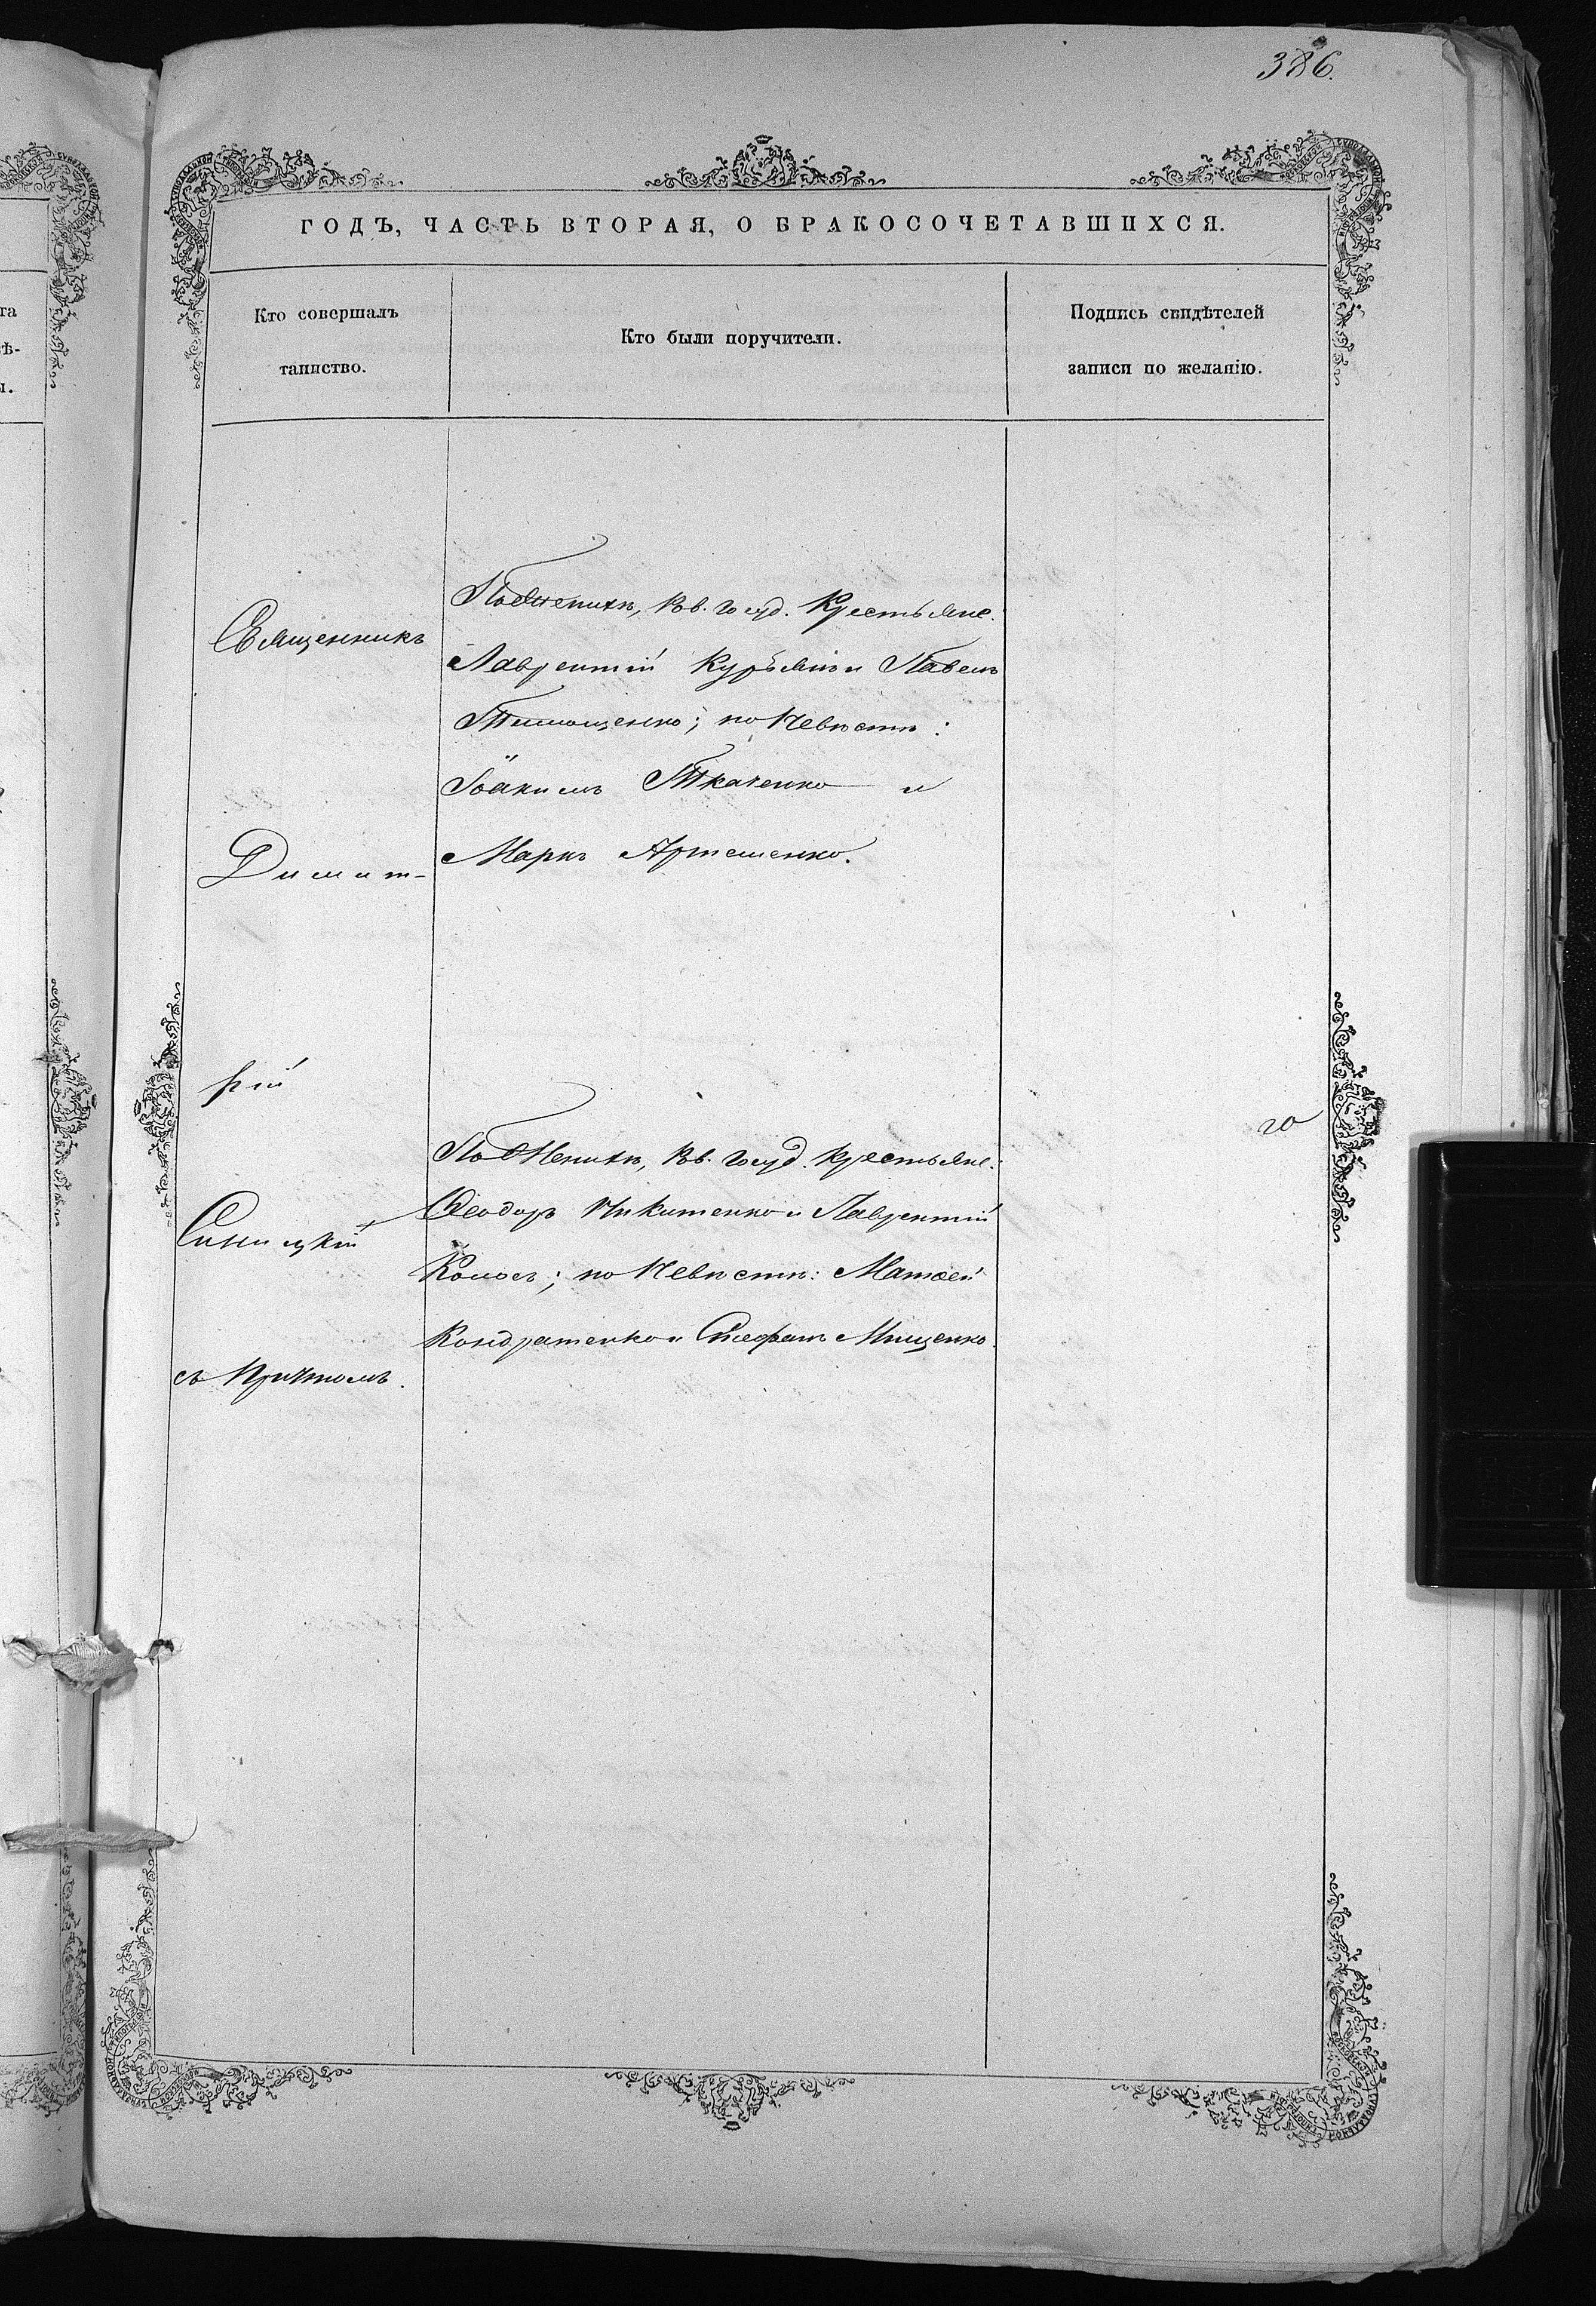 386.
ГОДЪ, ЧАСТЬ ВТОРАЯ, О БРАКОСОЧЕТАВШИХСЯ.
Кто совершалъ
таинство.
Кто были поручители.
Подпись свидѣтелей
записи по желанію.
Священникъ
Димит-
рій
Синицкій
съ Причтомъ.
По Женихѣ, Кв. Госуд. Крестьяне:
Лаврентій Курьянъ и Павелъ
Тимощенко; по Невѣстѣ:
Іоакимъ Ткаченко и
Маркъ Артеменко.
По Женихѣ, Кв. Госуд. Крестьяне:
Ѳеодоръ Никитенко и Лаврентій
Комокъ; по Невѣстѣ: Матѳей
Кондратенко и Стефанъ Мищенко.
го